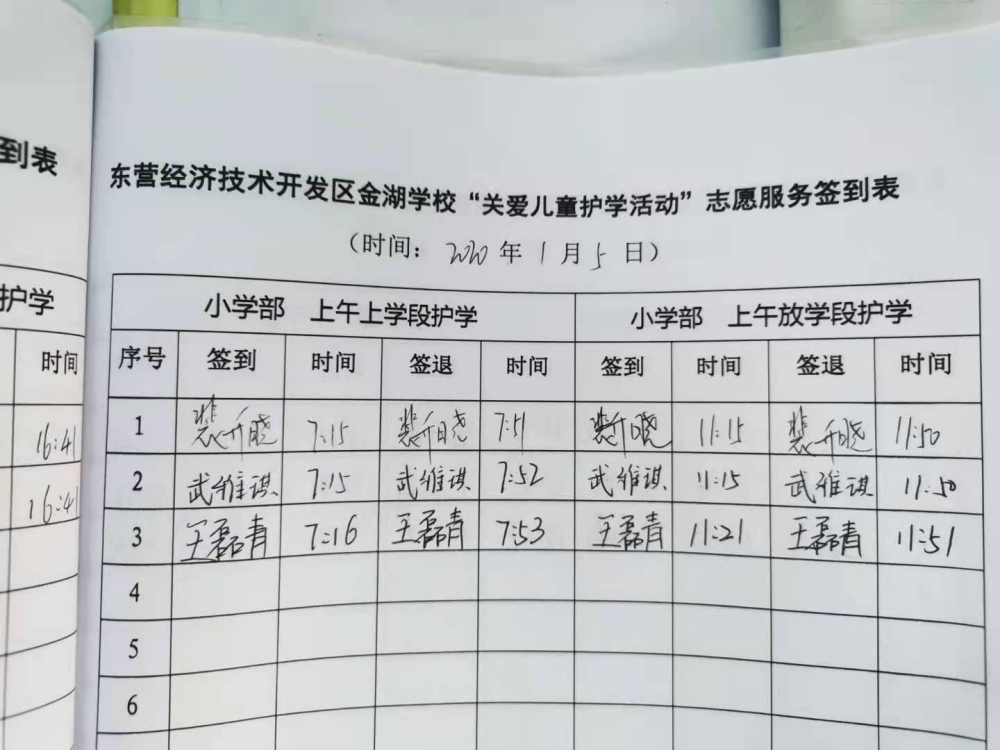 到表
东营经济技术开发区金湖学校“关爱儿童护学活动”志愿服务签到表
（时间：2020年1月5日）
护学
小学部 上午上学段护学 小学部 上午放学段护学
时间
序号 签到 时间 签退 时间 签到 时间 签退 时间
16:41
1 裴升晓 7:15 裴升晓 7:51 裴升晓 11:15 裴升晓 11:50
16:41
2 武维琪 7:15 武维琪 7:52 武维琪 11:15 武维琪 11:50
3 王磊青 7:16 王磊青 7:53 王磊青 11:21 王磊青 11:51
4
5
6